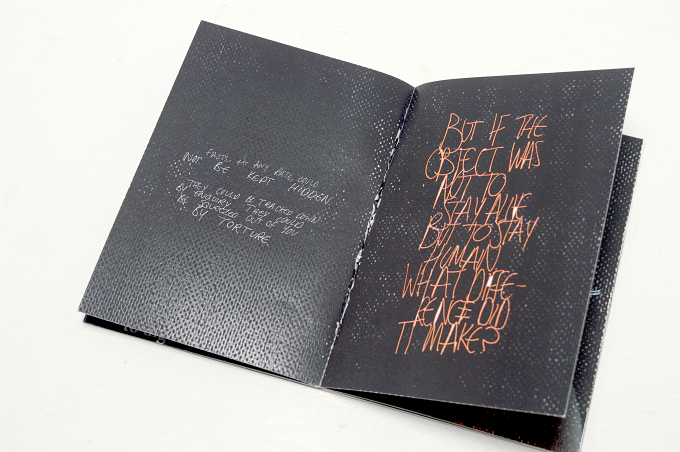 FACTS, AT ANY RATE, COULD
NOT BE KEPT HIDDEN.
THEY COULD BE TRACKED DOWN
BY ENQUIRY, THEY COULD
BE SQUEEZED OUT OF YOU
BY TORTURE
BUT IF THE
OBJECT WAS
NOT TO
STAY ALIVE
BUT TO STAY
HUMAN
WHAT DIFFE-
RENCE DID
IT MAKE?